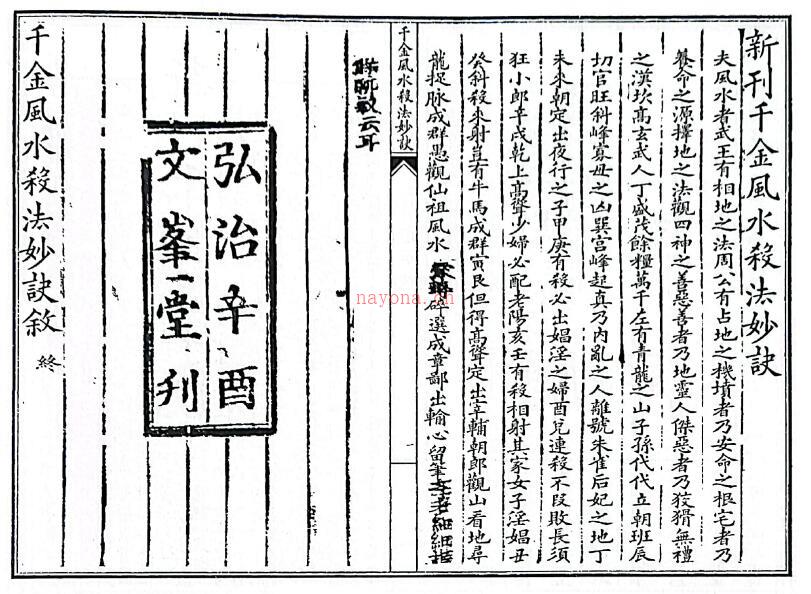 新刊千金風水殺法妙訣
夫風水者武王有相地之法周公有占地之機墳者乃安命之根宅者乃
養命之源擇地之法觀四神之善惡善者乃地靈人傑惡者乃狡猾無禮
之漢坎高玄武人丁盛茂餘糧萬千左有青龍之山子孫代代立朝班辰
切官旺斜峰寡母之凶巽宮峰起真乃內亂之人離號朱雀后妃之地丁
未來朝定出夜行之子甲庚有殺必出娼淫之婦酉兌連殺不段敗長須
狂小郎辛戌乾上高聳少婦必配老陽亥壬有殺相射其家女子淫娼丑
癸斜殺來射豈有牛馬成群寅艮但得高聳定出宰輔朝郎觀山看地尋
龍捉脉成群愚觀仙祖風水 碎選成章鄙出輸心留筆
云耳
千金風水殺法妙訣
一
弘治辛酉
文峯堂刋
千金風水殺法妙訣敘
終
nayona.cn